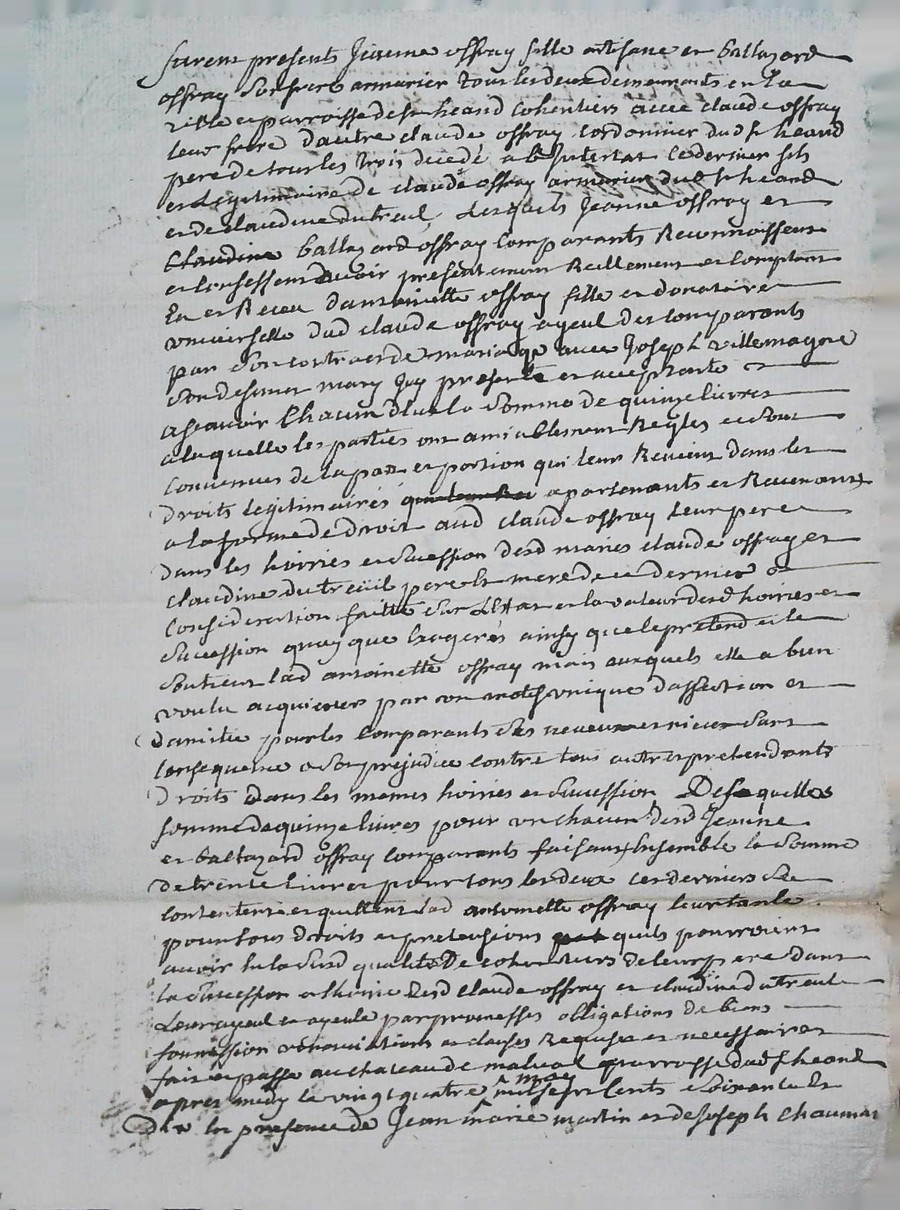 furent presents Jeanne offray fille artisane et Baltazard
offray son frere armurier tous les deux demeurants en la
ville et parroisse de st heand cohéritiers avec claude offray
leur frere d'autre claude offray cordonnier dud st heand
pere de tous les trois decedé ab intestat ce dernier fils
et légitimaire de claude offray armurier dud st heand
et de claudine dutreul, Lesquels Jeanne offray et
Baltazard offray Comparants Reconnoissent
et confessent avoir présentement Reellement et comptant
Eu et Receu dantoinette offray fille et donataire
universelle dud claude offray ayeul des comparants
par son contract de mariage avec Joseph villemagne
son defunct mary Icy presente et acceptante
a sçavoir Chacun deux la somme de quinze livres
a laquelle les parties ont amiablement Reglés et sont
convenues de la part et portion qui leur Revient dans les
droits legitimairés apartenants et Revenants
a la forme de droit aud claude offray leur pere
dans les hoiries et succession desd mariés claude offray et
claudine dutreüil pere et mere de ce dernier
Consideration faitte sur l'Etat et la valeur desd hoiries et
succession quoy que Exagerés ainsy que le prétend et le
soutient lad antoinette offray mais auxquels elle a bien
voulu acquiescer par un motif unique daffection et
damitié pour les Comparants ses neveux et niece sans
consequence a son préjudice contre tous autres pretendants
droits dans les memes hoiries et succession Desquelles
somme de quinze livres pour un chacun desd Jeanne
et baltazard offray comparants faisant Ensemble la somme
de trente Livres pour tous les deux ces derniers se
contentent et quittent lad antoinette offray leur tante
pour tous droits et pretensions quils pourroient
avoir en la susd qualité De cohéritiers de leur pere dans
la succession et hoirie desd claude offray et claudine dutreul
Leur ayeul et ayeule par promesses obligations de biens
soumission renonciations et clauses Requises et necessaires
fait et passé au chateau de malval parroisse dud st heand
apres midy le vingt quatre may mil sept cents soixante et
dix en presence de Jean marie martin et de Joseph chaumat